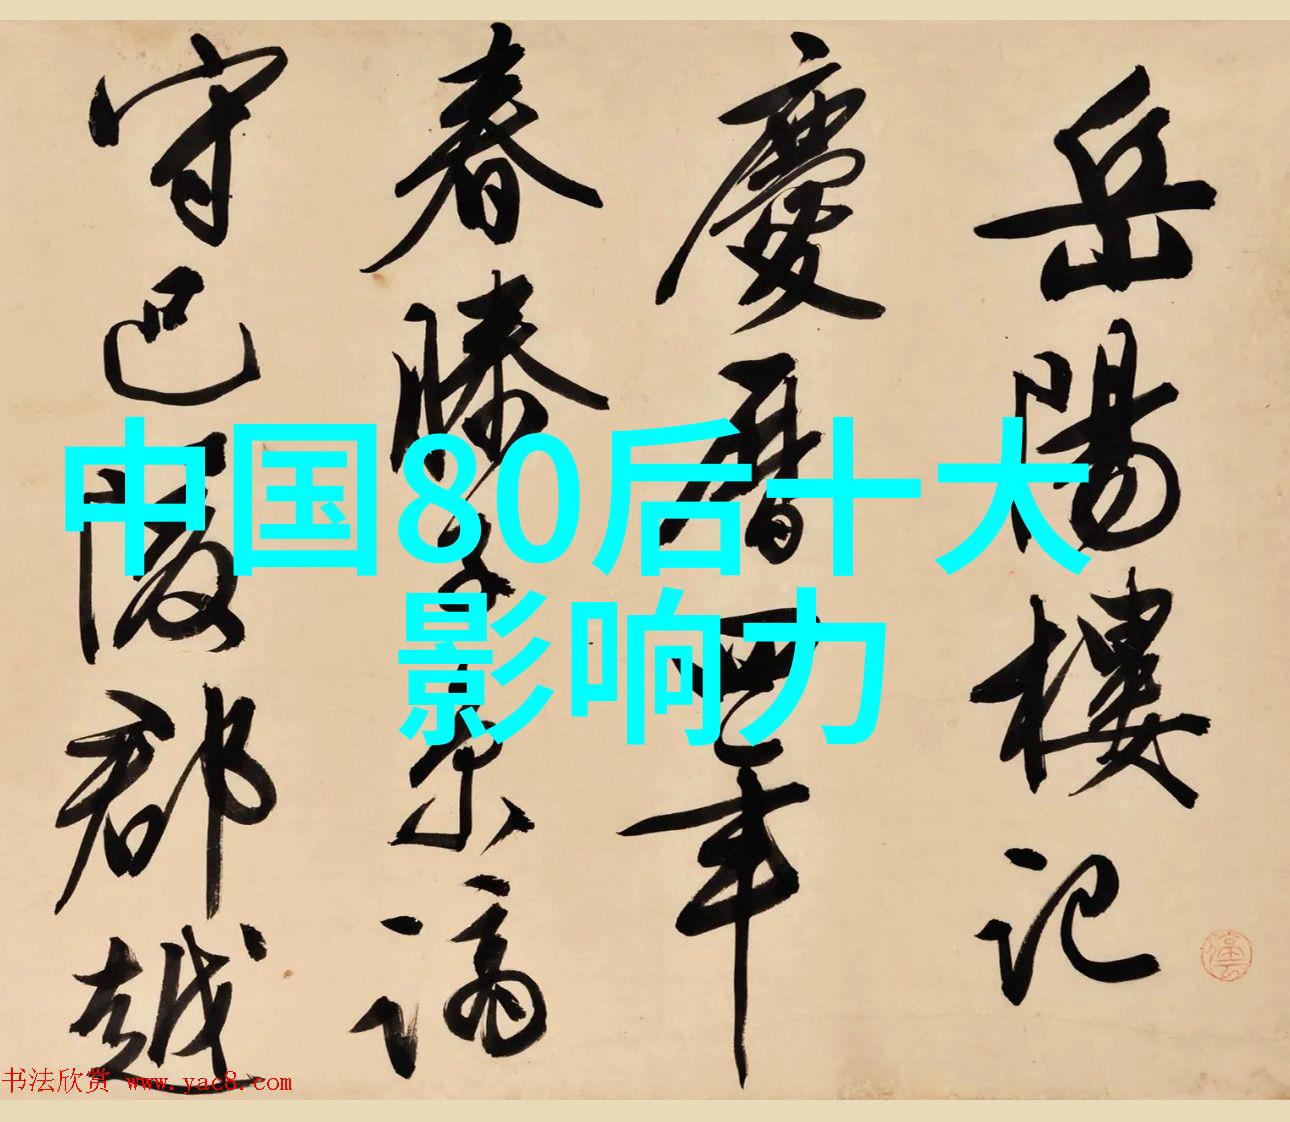 岳陽樓記
慶曆四年
春滕子京謫
守巴陵郡越
中国80后十大
影响力
书法欣赏 www.yac8.com